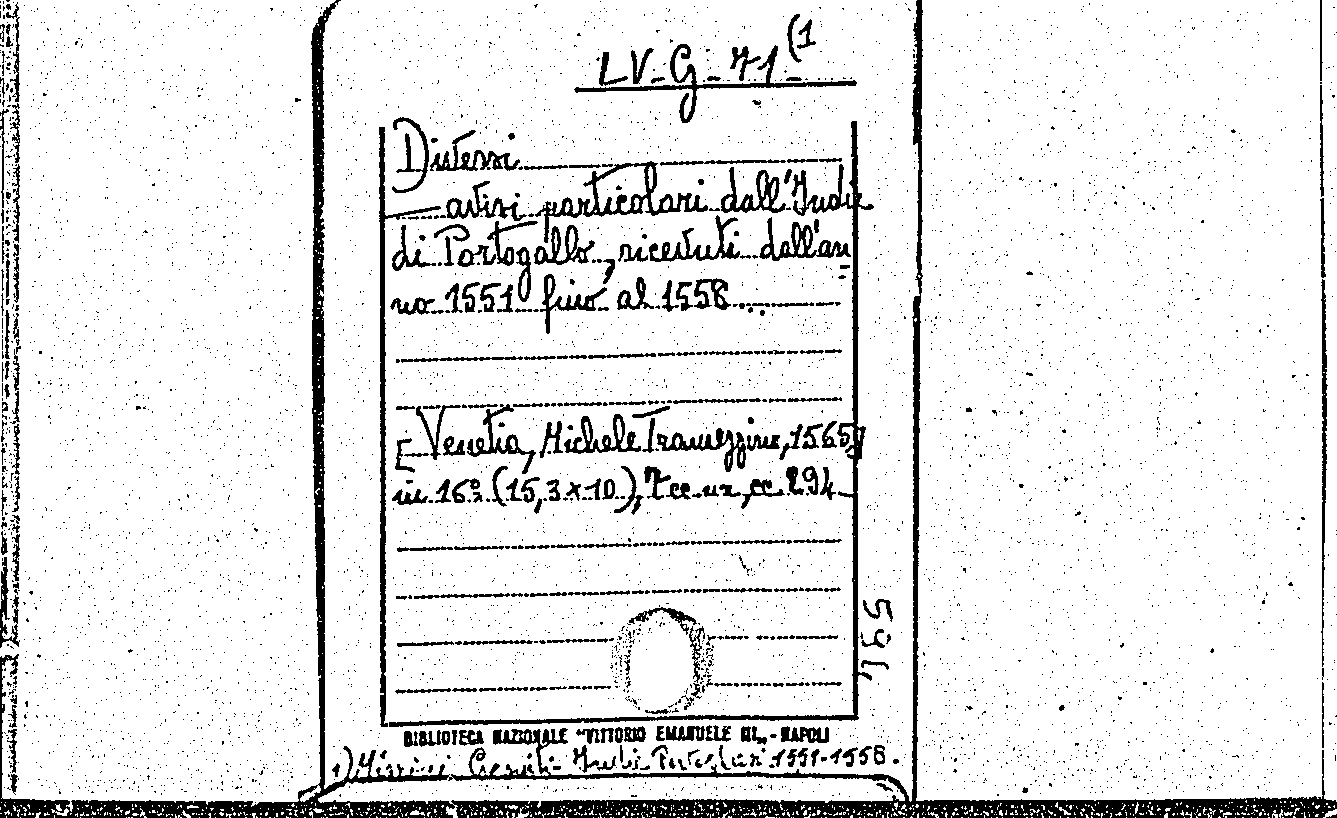 LV-G-71 (1
Diversi
— avisi particolari dall'Indie
di Portogallo, ricevuti dall'an
no 1551 fino al 1558...
[Venetia, Michele Tramezzino, 1565]
in 16º (15,3 x 10), 7 cc nn, cc 294
594
BIBLIOTECA NAZIONALE "VITTORIO EMANUELE III„ - NAPOLI
1) Missioni Gesuiti - Indie Portoghesi 1551-1558.